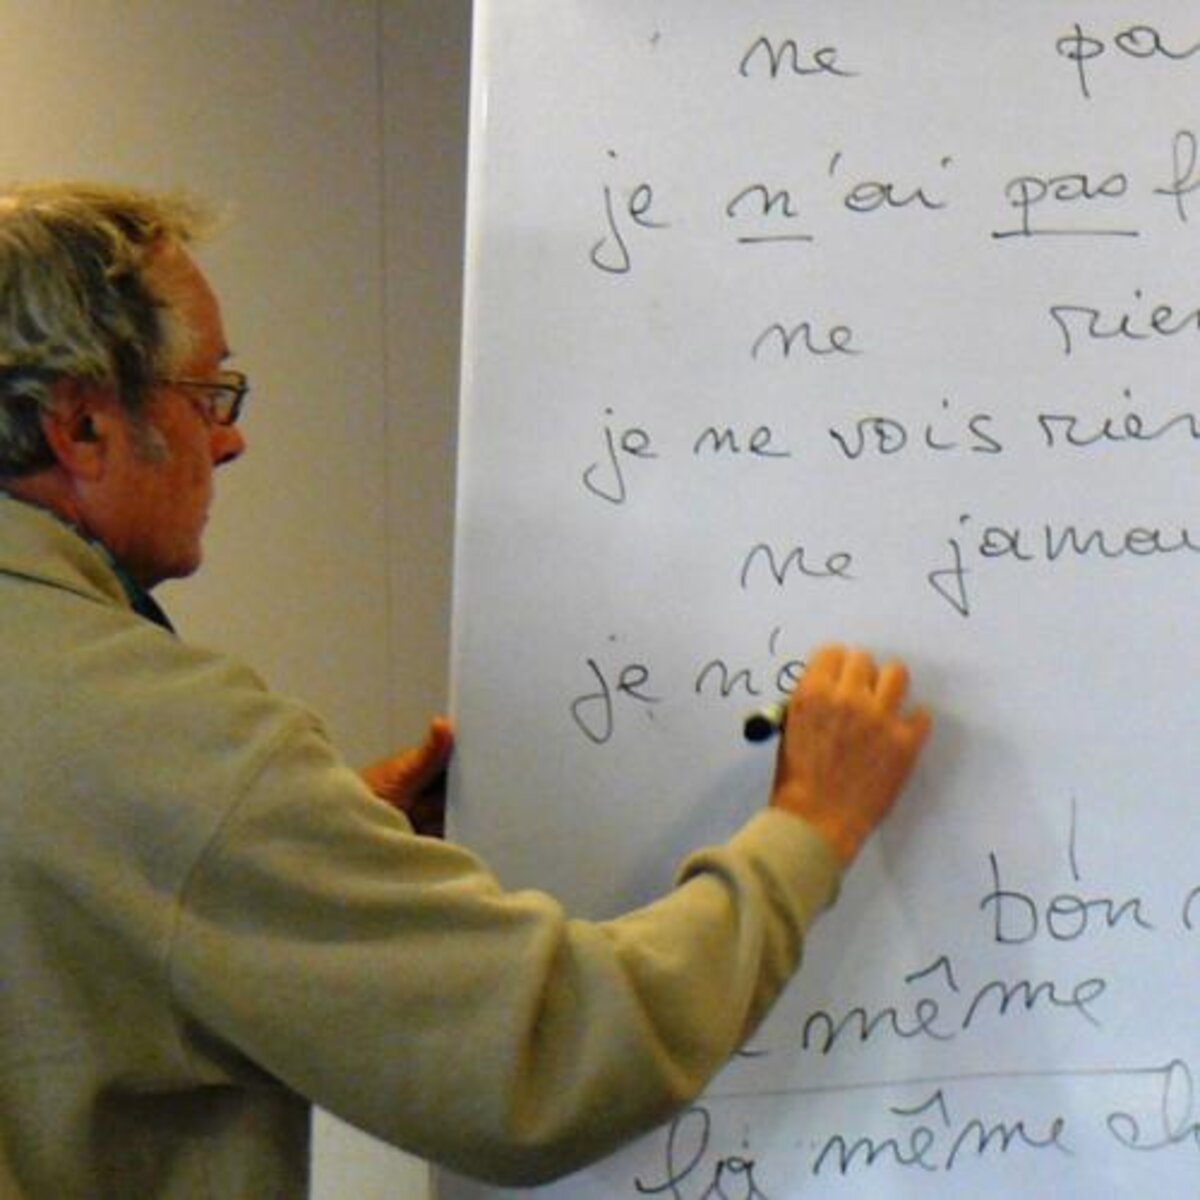 ne pa
je n'ai pas f
ne rien
je ne vois rien
ne jamai
je n'a
bon
même
la même ch